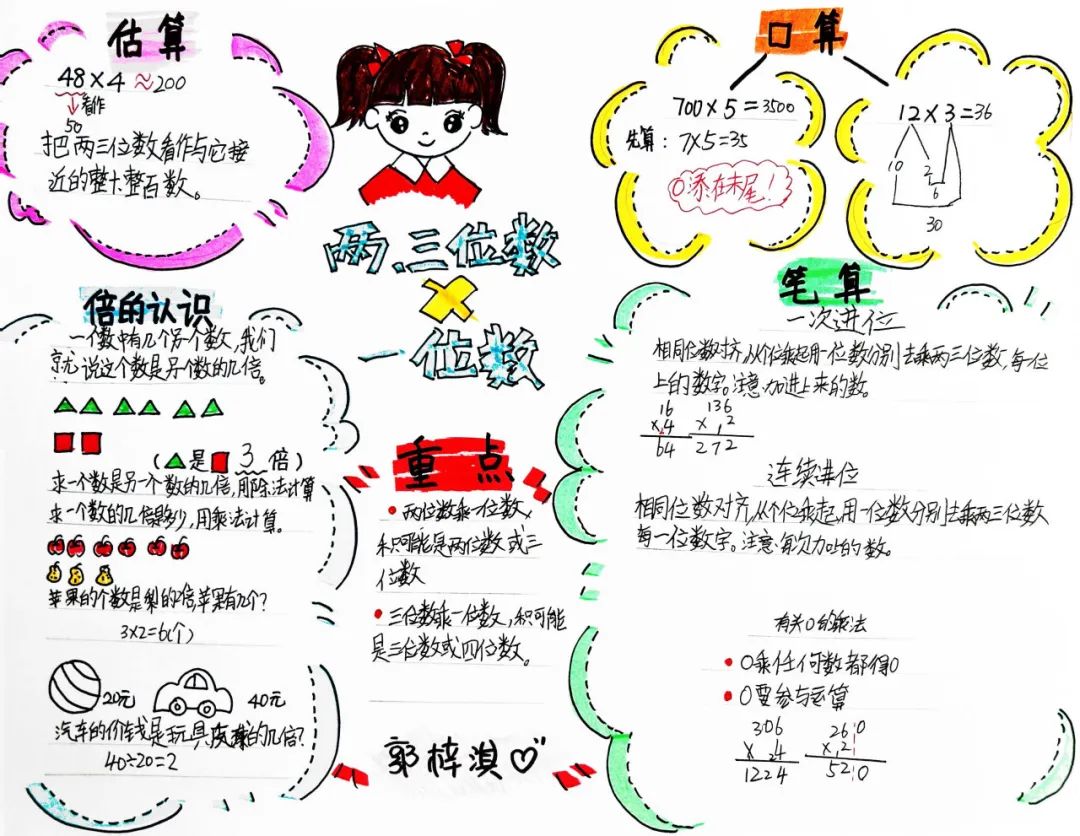 估算
48×4≈200
看作
50
把两三位数看作与它接
近的整十整百数。
口算
700×5=3500
先算：7×5=35
0添在末尾！
12×3=36
10 2
6
30
两、三位数
×
一位数
倍的认识
一个数中有几个另一个数，我们
就说这个数是另一个数的几倍。
（▲是■3倍）
求一个数是另一个数的几倍，用除法计算
求一个数的几倍是多少，用乘法计算。
苹果的个数是梨的2倍，苹果有几个？
3×2=6（个）
20元 40元
汽车的价钱是玩具皮球的几倍？
40÷20=2
重点
•两位数乘一位数，
积可能是两位数或三
位数
•三位数乘一位数，积可能
是三位数或四位数。
郭梓淇♡
笔算
一次进位
相同位数对齐，从个位乘起用一位数分别去乘两三位数，每一位
上的数字。注意：加进上来的数。
16 136
×4 ×2
64 272
连续进位
相同位数对齐，从个位乘起，用一位数分别去乘两三位数
每一位数字。注意：每次加的数。
有关0的乘法
•0乘任何数都得0
•0要参与运算
306 260
×4 ×2
1224 520